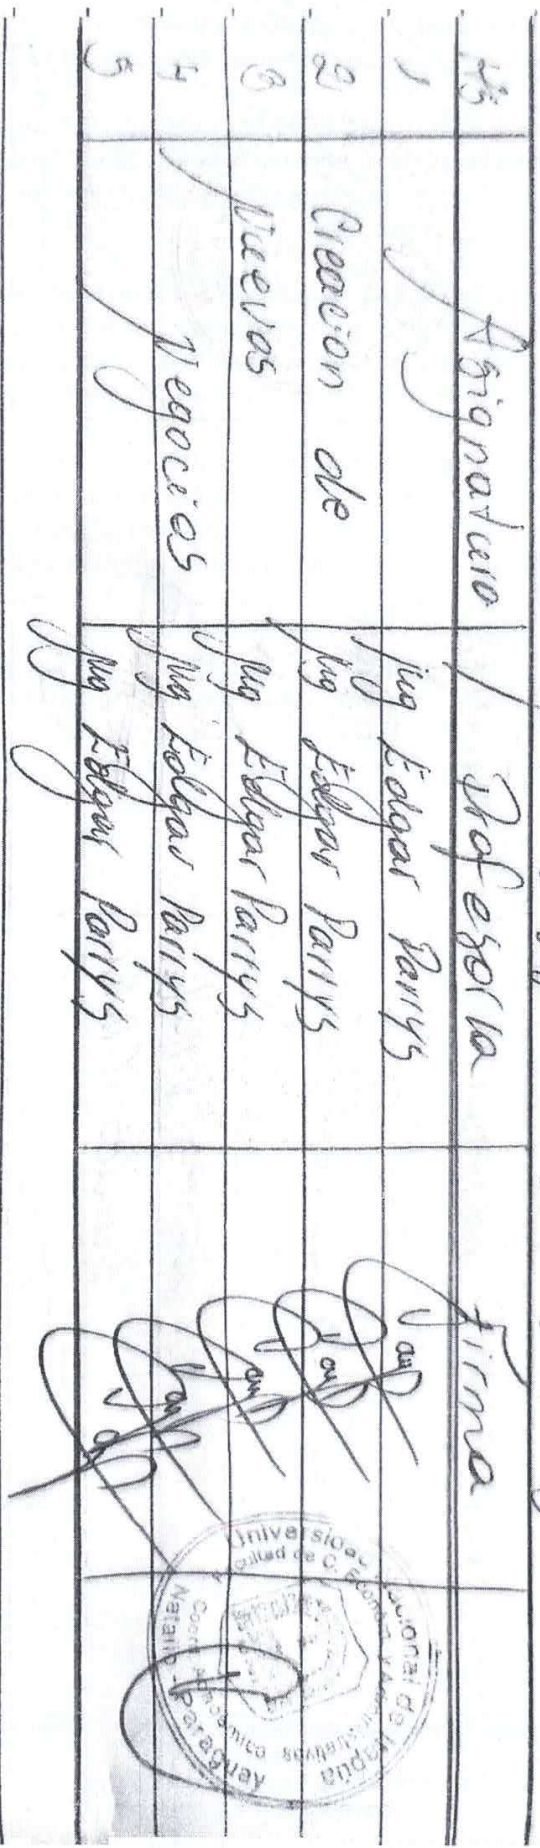 Hs Asignatura Profesor/a Firma
1 Ing Edgar Parrys
2 Creación de Ing Edgar Parrys
3 Nuevos Ing Edgar Parrys
4 Negocios Ing Edgar Parrys
5 Ing Edgar Parrys
Universidad Nacional de Itapúa
Facultad de C. Económ. y Administrativas
Académica
Natalio - Paraguay